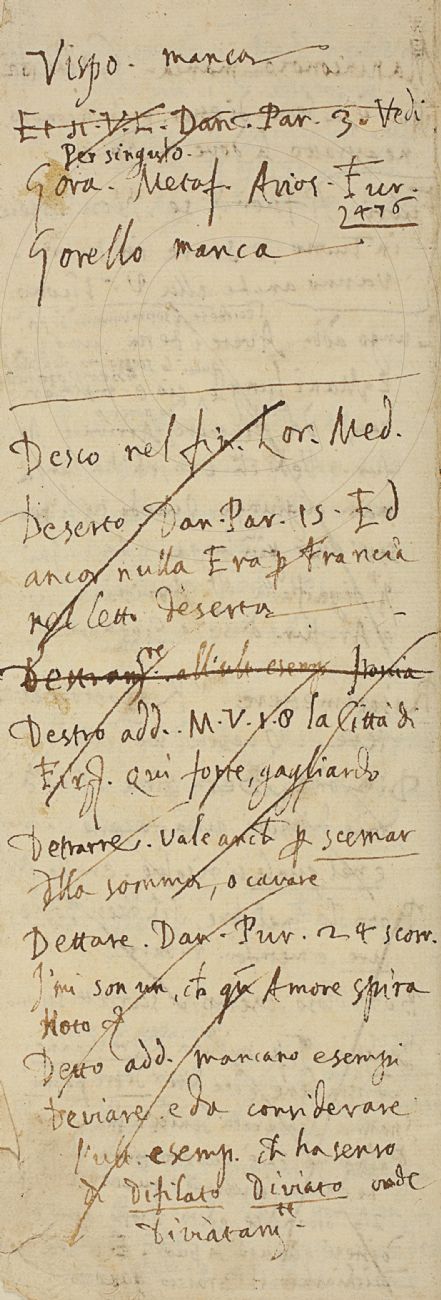 Vispo. manca
Et si. V. L. Dan. Par. 3. Vedi
Per singulo.
Gora. Metaf. Arios. Fur.
2476
Gorello manca
Desco nel fin. Lor. Med.
Deserto. Dan. Par. 15. Ed
ancor nulla Era p Francia
nel letto deserta
all'ult esemp
Destro add. M. V. 1. 8 la Città di
Fir. Qui forte, gagliardo
Detrarre. Vale anch p scemar
dlla somma, o cavare
Dettare. Dan. Pur. 24 scorr.
I' mi son un, ch qn Amore spira
Noto &
Detto add. mancano esempi
Deviare e da considerare
l'ult. esemp. ch ha senso
di Difilato Diviato onde
Diviatamte